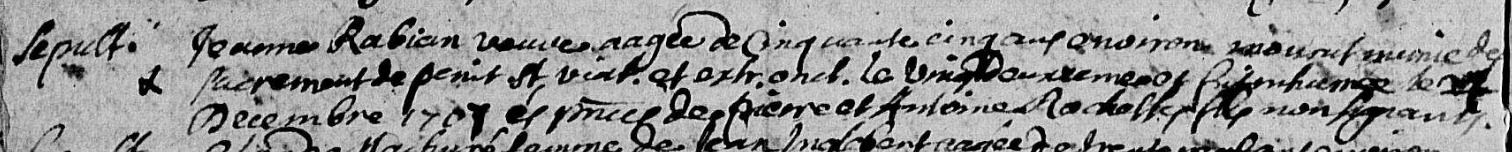 Sepult. Jeanne Rabian veuve aagée de cinquante cinq ans environ mourut munie des
& sacrement de penit. St viat. et extr. onct. le vingt deuxxieme et fut inhumée le
Decembre 1707 es pnces de pierre et Antoine Rochette fils non signants.
femme de Jean aagée de trente